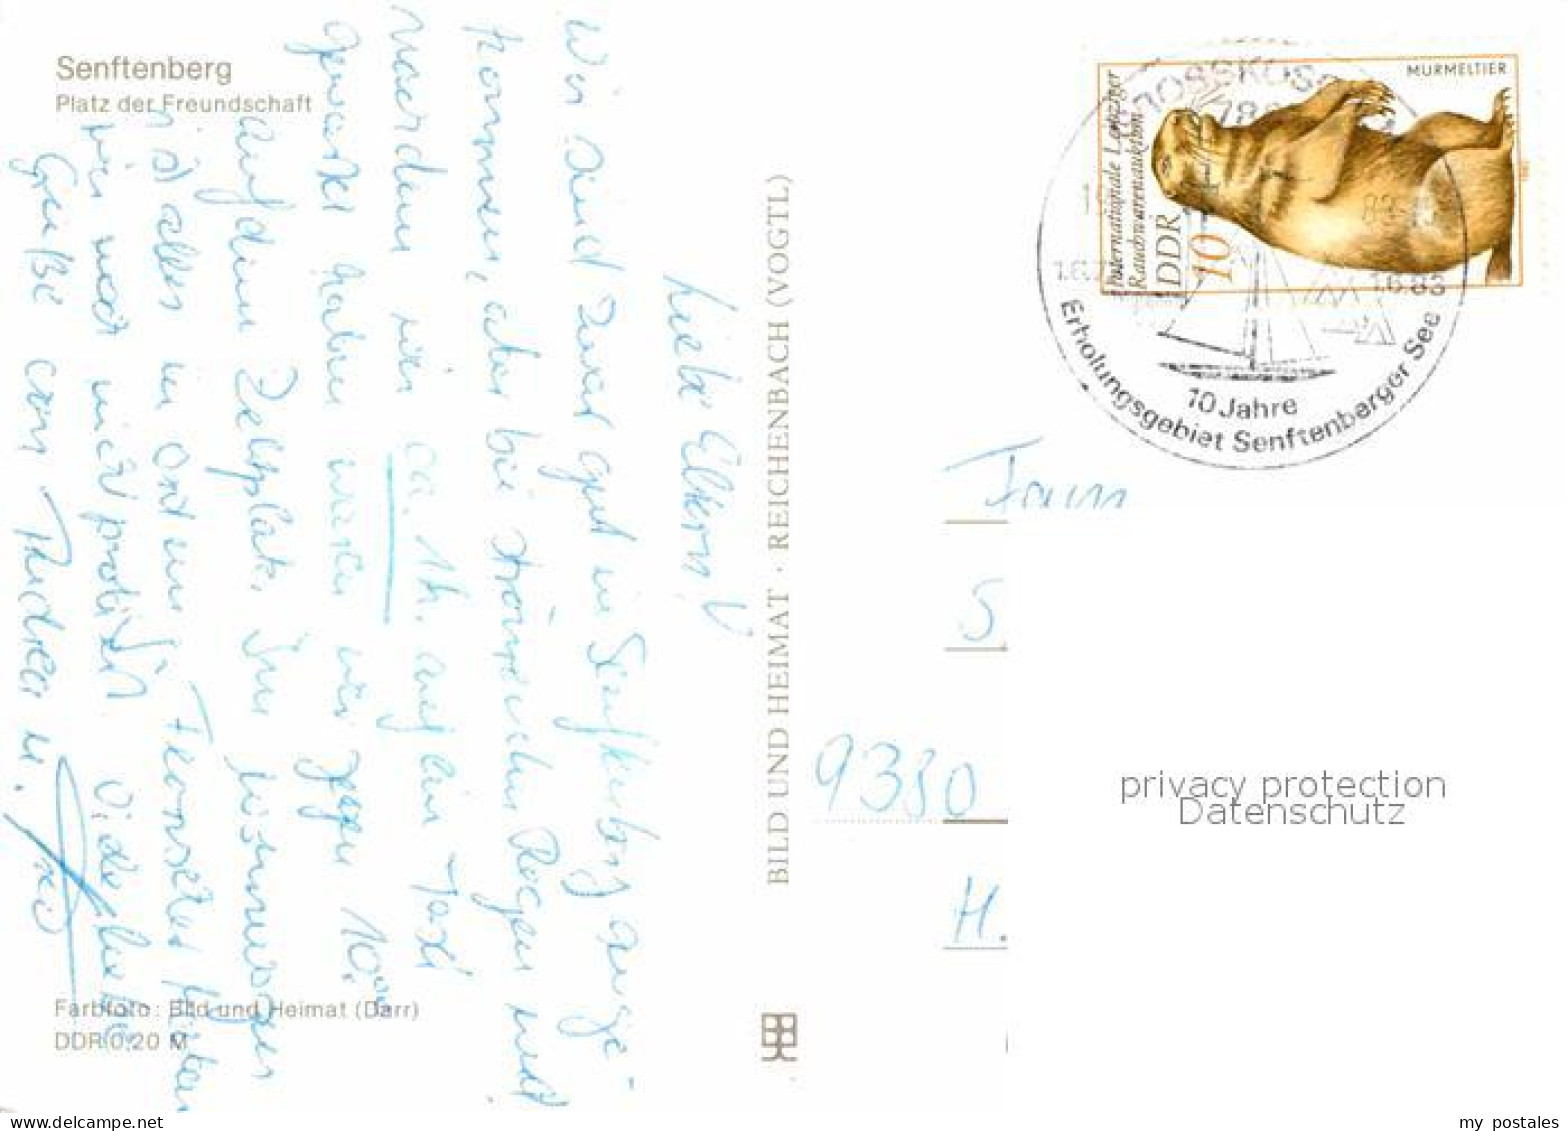 Senftenberg
Platz der Freundschaft
Liebe Eltern!
Wir sind zwar gut in Senftenberg ange-
kommen, aber bei strömendem Regen und
nachdem wir ca. 1h. auf ein Taxi
gewartet haben waren wir gegen 10.00
auf dem Zeltplatz. Im Wohnwagen
ist alles in Ordnung. Fernseher haben
wir noch nicht probiert. Viele liebe
Grüße von Andrea u.
Farbfoto: Bild und Heimat (Darr)
DDR 0,20 M
BILD UND HEIMAT · REICHENBACH (VOGTL)
MURMELTIER
Internationale Leipziger
Rauchwarenauktion
DDR
10
1.6.83
10 Jahre
Erholungsgebiet Senftenberger See
Fam
S
9330
H.
privacy protection
Datenschutz
www.delcampe.net
my_postales